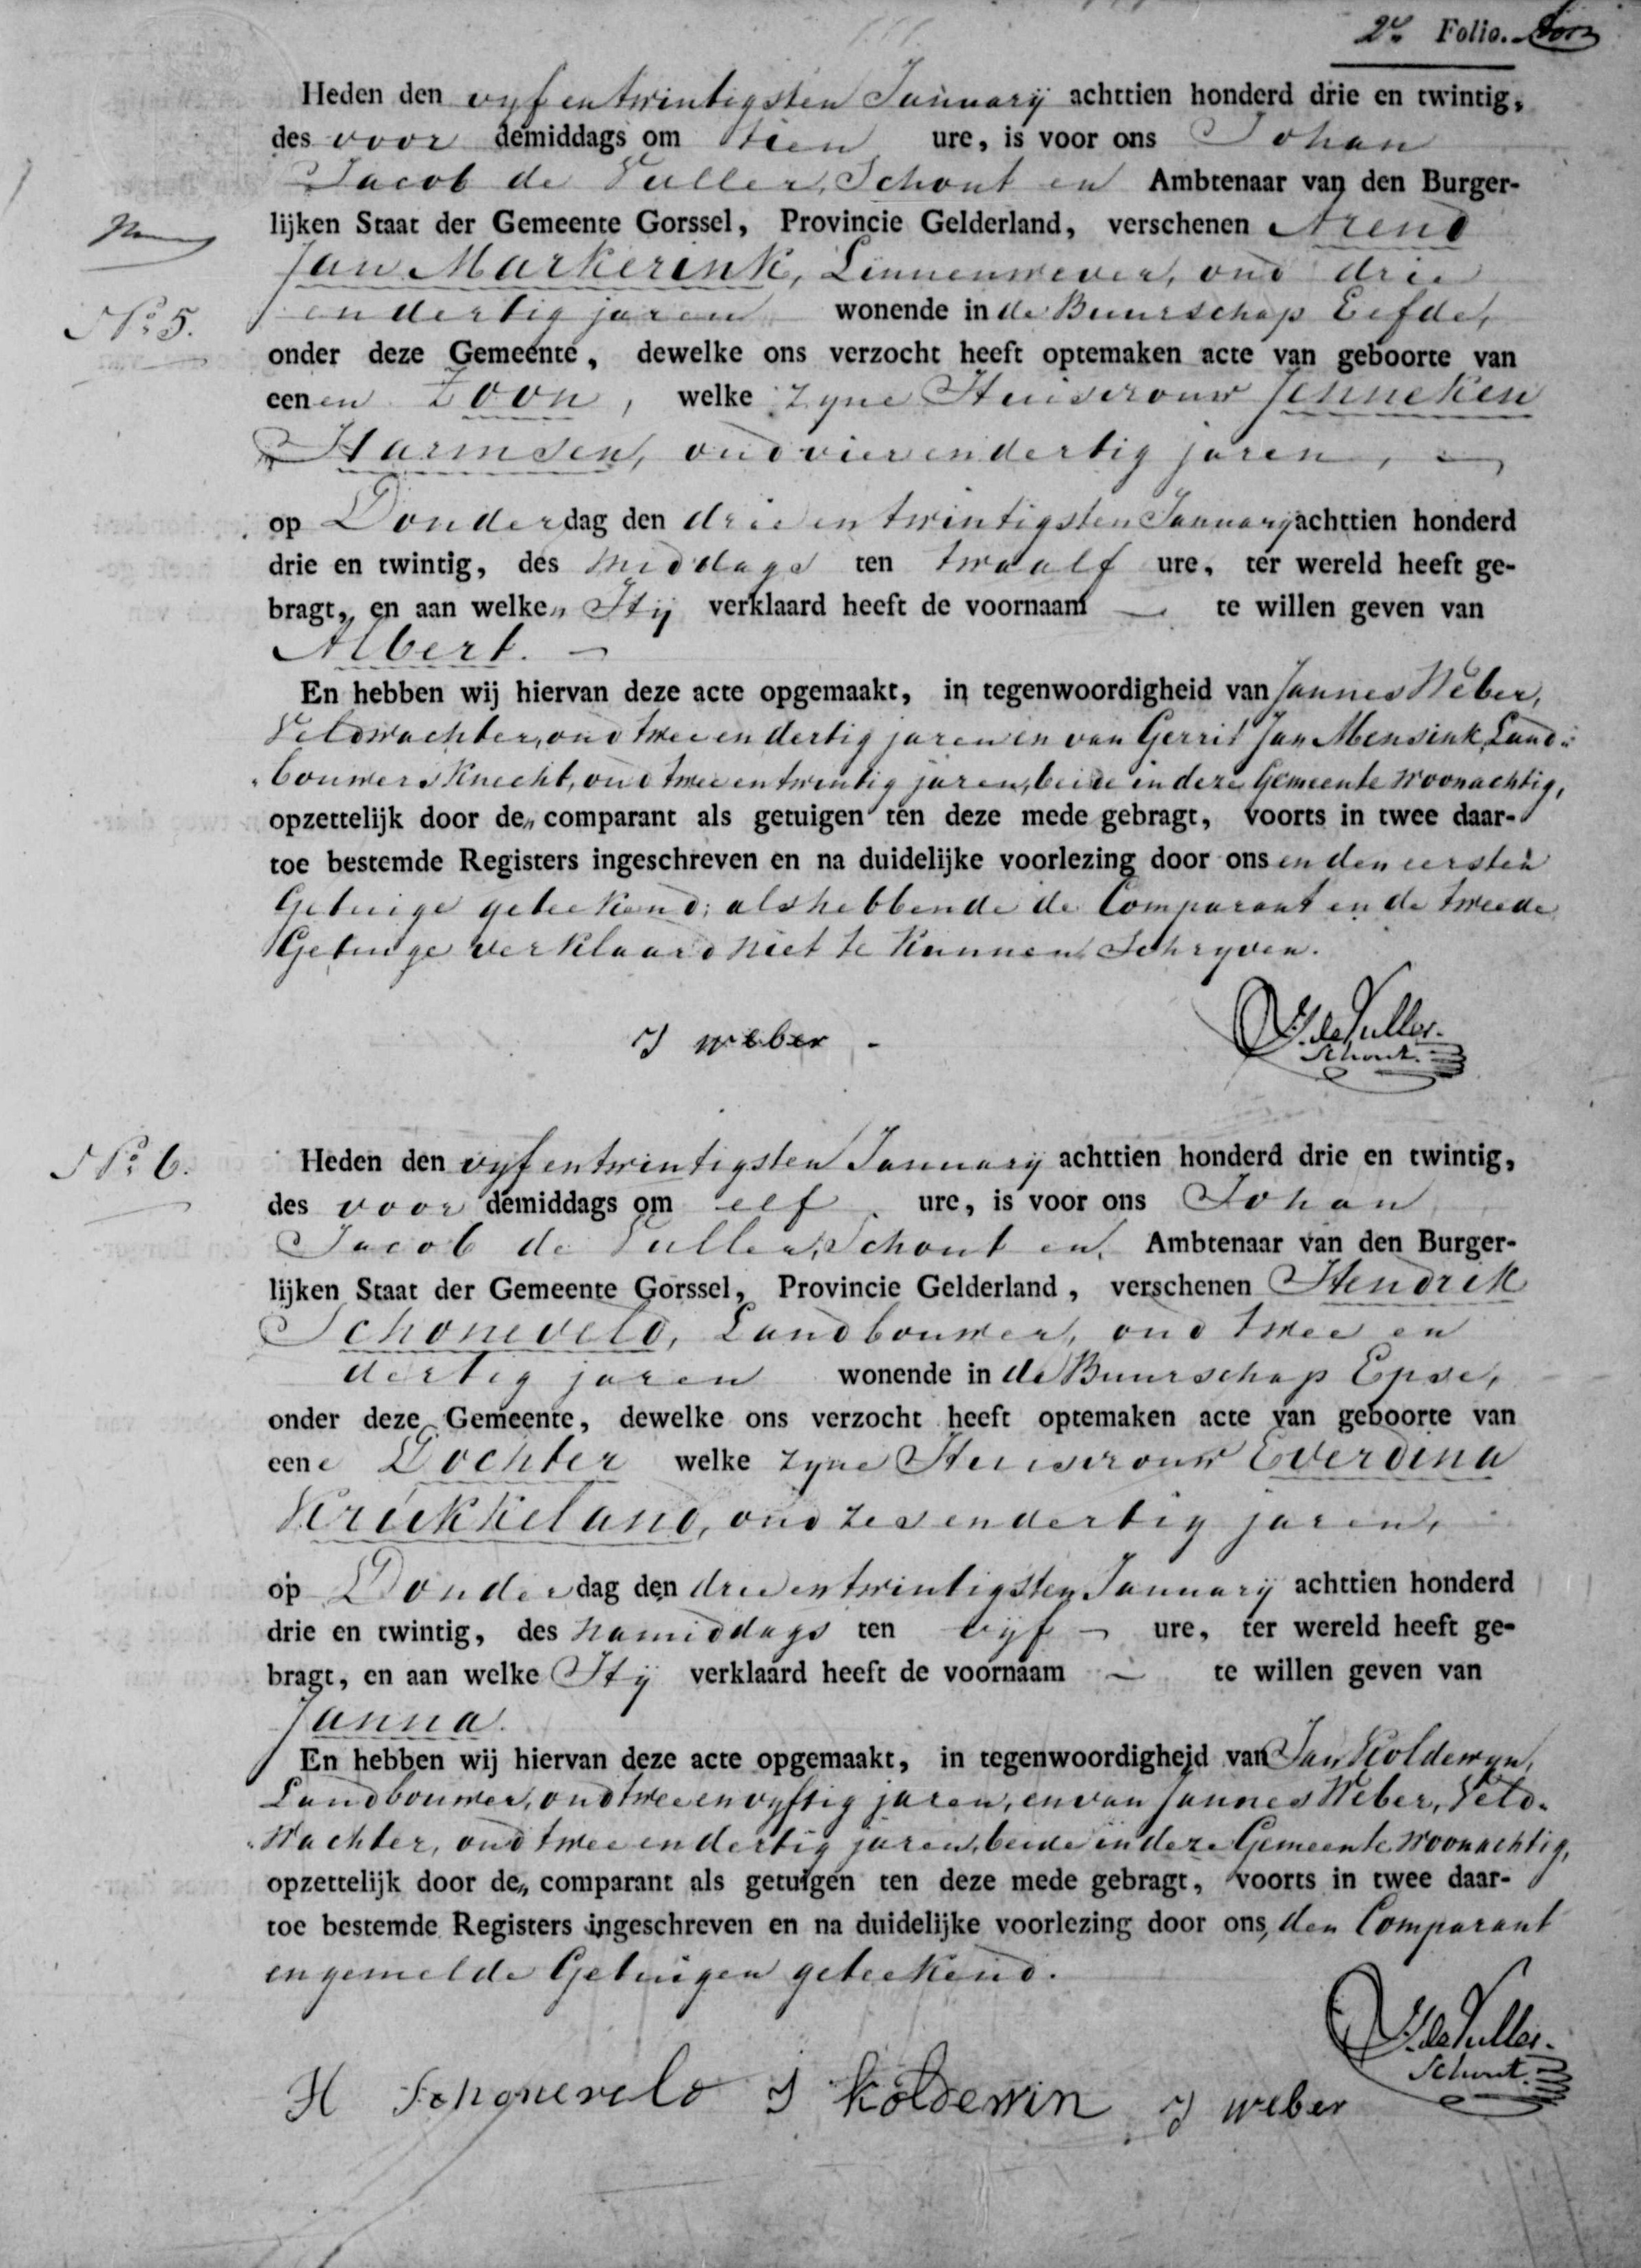 2e Folio.
Heden den vyfentwintigsten January achttien honderd drie en twintig,
des voor demiddags om tien ure, is voor ons Johan
Jacob de Vuller, Schout en Ambtenaar van den Burger-
lijken Staat der Gemeente Gorssel, Provincie Gelderland, verschenen Arend
Jan Markerink, Linnenwever, oud drie
No 5.
en dertig jaren wonende in de Buurschap Eefde,
onder deze Gemeente, dewelke ons verzocht heeft optemaken acte van geboorte van
eenen Zoon, welke zyne Huisvrouw Jenneken
Harmsen, oud vierendertig jaren,
op Donderdag den drieentwintigsten January achttien honderd
drie en twintig, des middags ten twaalf ure, ter wereld heeft ge-
bragt, en aan welken Hij verklaard heeft de voornaam — te willen geven van
Albert. —
En hebben wij hiervan deze acte opgemaakt, in tegenwoordigheid van Jannes Weber,
Veldwachter, oud twee en dertig jaren en van Gerrit Jan Mensink, Land-
bouwersknecht, oud twee en twintig jaren, beide in deze Gemeente woonachtig,
opzettelijk door den comparant als getuigen ten deze mede gebragt, voorts in twee daar-
toe bestemde Registers ingeschreven en na duidelijke voorlezing door ons en den eersten
Getuige geteekend; als hebbende de Comparant en de tweede
Getuige verklaard niet te kunnen Schryven.
J weber -
J. de Vuller.
Schout.
No 6.
Heden den vyfentwintigsten January achttien honderd drie en twintig,
des voor demiddags om elf ure, is voor ons Johan
Jacob de Vuller, Schout en Ambtenaar van den Burger-
lijken Staat der Gemeente Gorssel, Provincie Gelderland, verschenen Hendrik
Schoneveld, Landbouwer, oud twee en
dertig jaren wonende in de Buurschap Epse,
onder deze Gemeente, dewelke ons verzocht heeft optemaken acte van geboorte van
eene Dochter welke zyne Huisvrouw Everdina
Kruekkeland, oud zes en dertig jaren,
op Donderdag den drieentwintigsten January achttien honderd
drie en twintig, des namiddags ten vyf — ure, ter wereld heeft ge-
bragt, en aan welke Hij verklaard heeft de voornaam — te willen geven van
Janna.
En hebben wij hiervan deze acte opgemaakt, in tegenwoordigheid van Jan Koldewyn,
Landbouwer, oud twee en vyftig jaren, en van Jannes Weber, Veld-
wachter, oud twee en dertig jaren, beide in deze Gemeente woonachtig,
opzettelijk door den comparant als getuigen ten deze mede gebragt, voorts in twee daar-
toe bestemde Registers ingeschreven en na duidelijke voorlezing door ons, den Comparant
en gemelde Getuigen geteekend.
J. de Vuller.
Schout.
H Schoneveld J koldewin J weber